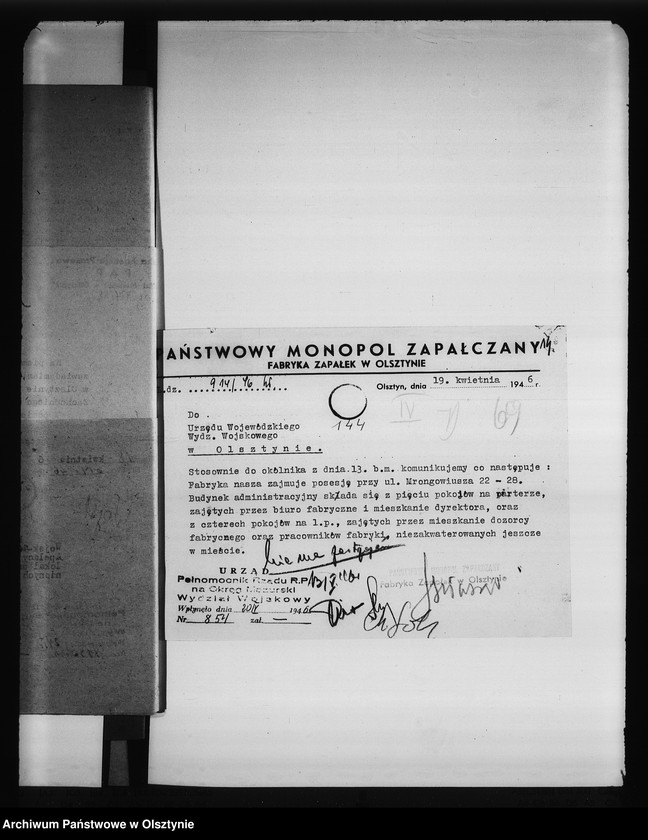 PAŃSTWOWY MONOPOL ZAPAŁCZANY
FABRYKA ZAPAŁEK W OLSZTYNIE
.dz. 914/46
Olsztyn, dnia 19. kwietnia 1946 r.
144
IV
69
Do
Urzędu Wojewódzkiego
Wydz. Wojskowego
w Olsztynie.
Stosownie do okólnika z dnia.13. b.m. komunikujemy co następuje :
Fabryka nasza zajmuje posesję przy ul. Wrongowiusza 22 - 28.
Budynek administracyjny składa się z pięciu pokojów na parterze,
zajętych przez biuro fabryczne i mieszkanie dyrektora, oraz
z czterech pokojów na 1.p., zajętych przez mieszkanie dozorcy
fabrycznego oraz pracowników fabryki, niezakwaterowanych jeszcze
w mieście.
URZĄD
Pełnomocnik Rządu R.P.
na Okręg Mazurski
Wydział Wojskowy
Wpłynęło dnia 20/IV 1946
Nr. 851 zał. —
Fabryka Zapałek w Olsztynie
Archiwum Państwowe w Olsztynie